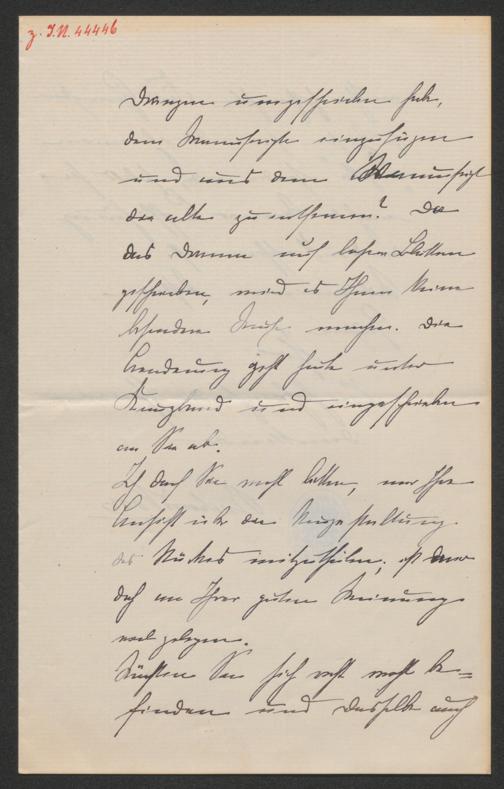 z. I.N. 44446
Drangen umgeschrieben habe,
dem Manuscripte einzufügen
und aus dem Manuscript
die alte zu entfernen? Da
das Drama auf losen Blättern
geschrieben, wird es Ihnen keine
besondere Mühe machen. Die
Sendung geht heute unter
Kreuzband und eingeschrieben
an Sie ab.
Ich darf Sie wohl bitten, mir Ihre
Ansicht über die Neugestaltung
des Stückes mitzutheilen; ist
doch an Ihrer guten Meinung
viel gelegen.
Sie sich recht wohl be=
finden und dasselbe auch